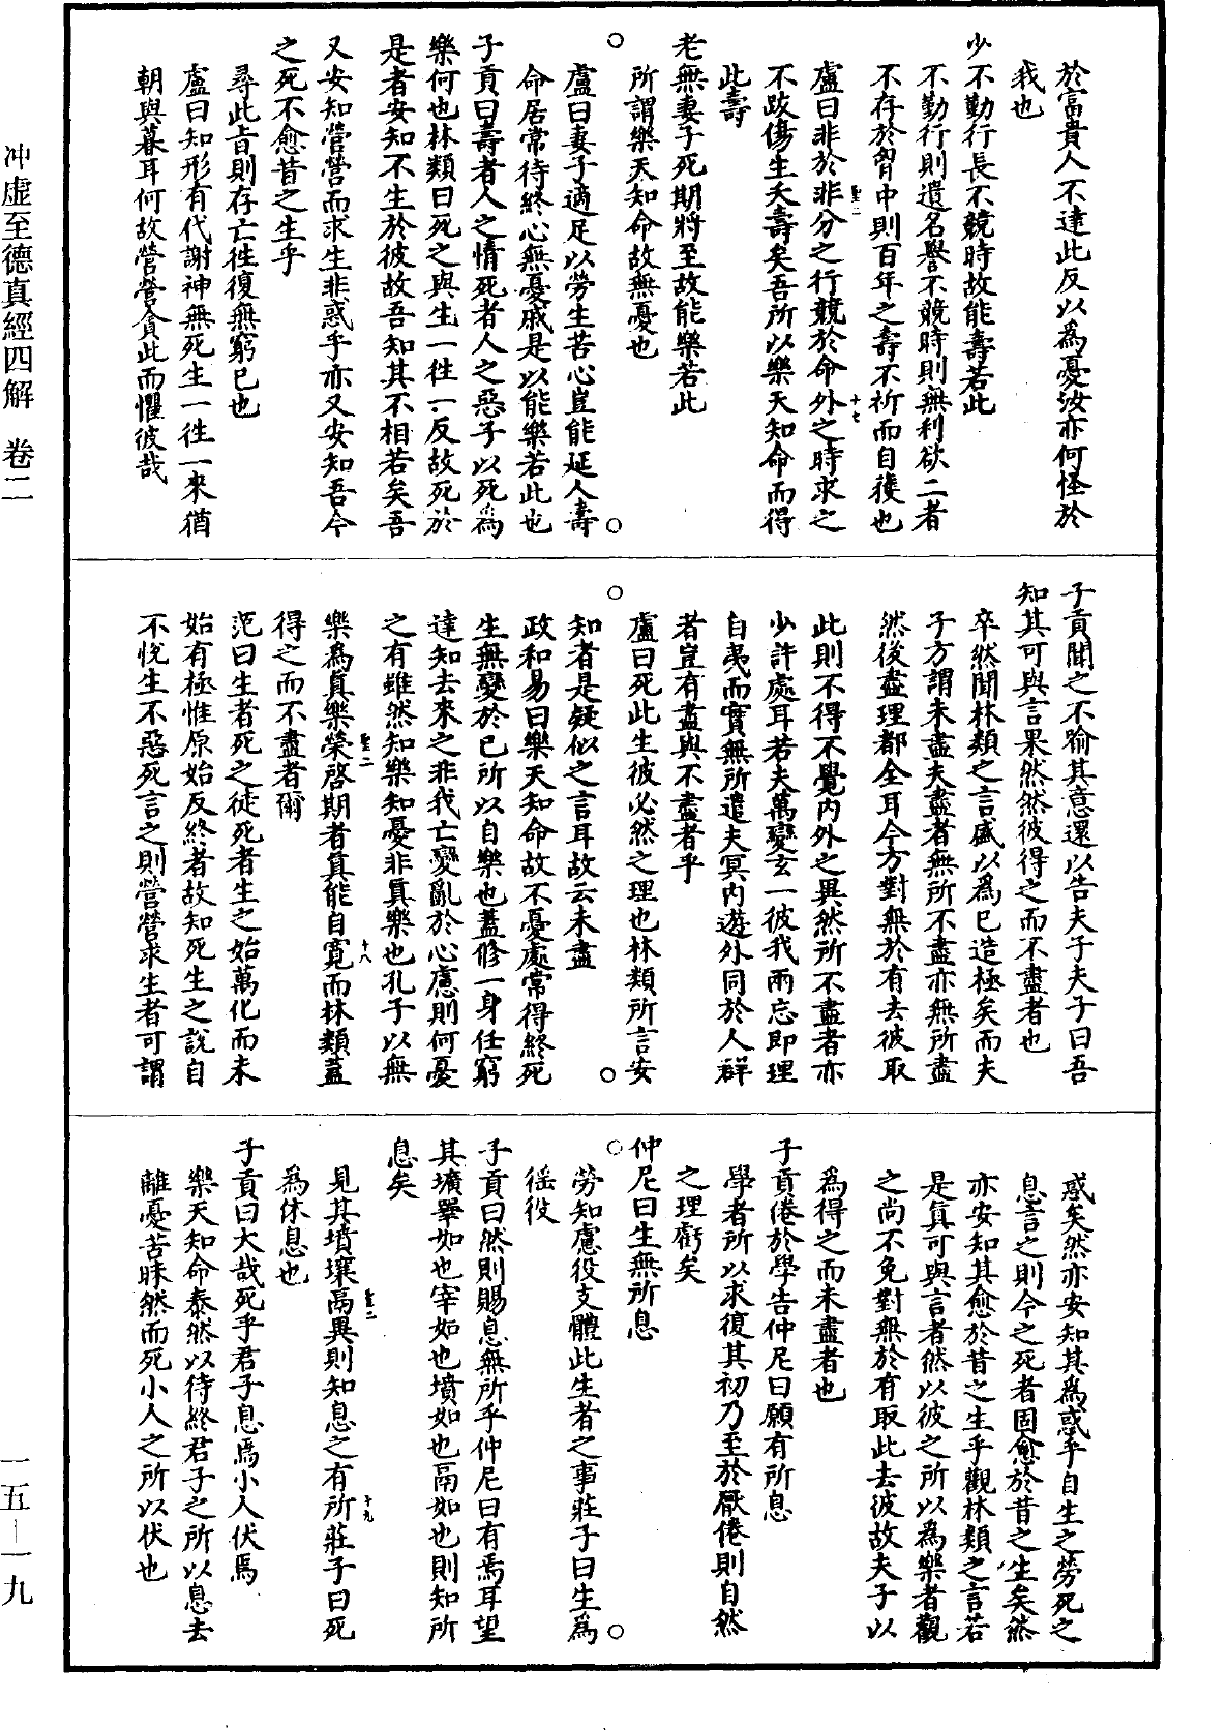 於富貴人不達此反以爲憂汝亦何怪於
我也
少不勤行長不競時故能壽若此
不勤行則遺名譽不競時則無利欲二者
不存於胷中則百年之壽不祈而自獲也
盧曰非於非分之行競於命外之時求之
不跂傷生夭壽矣吾所以樂天知命而得
此壽
老無妻子死期將至故能樂若此
所謂樂天知命故無憂也
盧曰妻子適足以勞生苦心豈能延人壽
命居常待終心無憂戚是以能樂若此也
子貢曰壽者人之情死者人之惡子以死爲
樂何也林類曰死之與生一徃一反故死於
是者安知不生於彼故吾知其不相若矣吾
又安知營營而求生非惑乎亦又安知吾今
之死不愈昔之生乎
尋此旨則存亡徃復無窮已也
盧曰知形有代謝神無死生一徃一來猶
朝與暮耳何故營營貪此而懼彼哉
子貢聞之不喻其意還以告夫子夫子曰吾
知其可與言果然然彼得之而不盡者也
卒然聞林類之言盛以爲已造極矣而夫
子方謂未盡夫盡者無所不盡亦無所盡
然後盡理都全耳今方對無於有去彼取
此則不得不覺内外之異然所不盡者亦
少許處耳若夫萬變玄一彼我兩忘即理
自夷而實無所遣夫冥内遊外同於人群
者豈有盡與不盡者乎
盧曰死此生彼必然之理也林類所言安
知者是疑似之言耳故云未盡
政和易曰樂天知命故不憂處常得終死
生無變於己所以自樂也蓋修一身任窮
達知去來之非我亡變亂於心慮則何憂
之有雖然知樂知憂非真樂也孔子以無
樂爲真樂榮啓期者真能自寬而林類蓋
得之而不盡者爾
范曰生者死之徒死者生之始萬化而未
始有極惟原始反終者故知死生之說自
不悅生不惡死言之則營營求生者可謂
惑矣然亦安知其爲惑乎自生之勞死之
息言之則今之死者固愈於昔之生矣然
亦安知其愈於昔之生乎觀林類之言若
是真可與言者然以彼之所以爲樂者觀
之尚不免對無於有取此去彼故夫子以
爲得之而未盡者也
子貢倦於學告仲尼曰願有所息
學者所以求復其初乃至於厭倦則自然
之理虧矣
仲尼曰生無所息
勞知慮役支體此生者之事莊子曰生爲
徭役
子貢曰然則賜息無所乎仲尼曰有焉耳望
其壙睪如也宰如也墳如也鬲如也則知所
息矣
見其墳壤鬲異則知息之有所莊子曰死
爲休息也
子貢曰大哉死乎君子息焉小人伏焉
樂天知命泰然以待終君子之所以息去
離憂苦昧然而死小人之所以伏也
冲虛至德真經四解　卷二
一五—一九